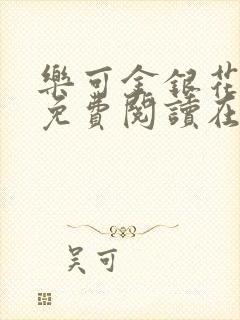 樂可金銀花
免費閱讀在
吴可